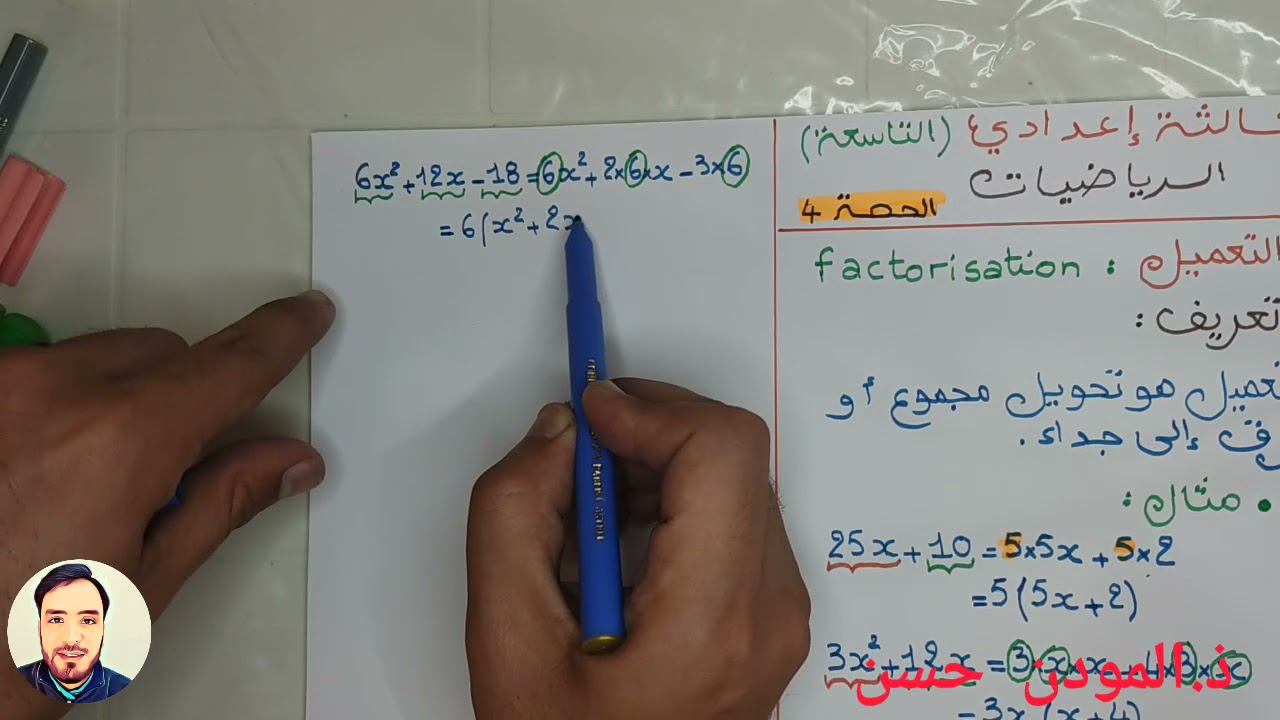 6x² + 12x - 18 = 6x² + 2×6×x - 3×6
= 6(x² + 2x
ـالثة إعدادي (التاسعة)
الرياضيات
الحصة 4
التعميل : factorisation
تعريف :
ـعميل هو تحويل مجموع أو
ـرق إلى جداء.
• مثال :
25x + 10 = 5×5x + 5×2
= 5(5x + 2)
3x² + 12x = 3×x×x + 4×3×x
= 3x(x+4)
ذ.المودن حسن